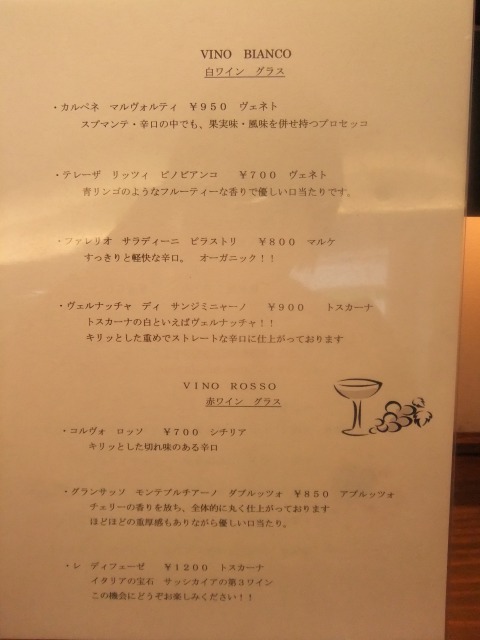 VINO BIANCO
白ワイン グラス
・カルペネ マルヴォルティ ￥９５０ ヴェネト
スプマンテ・辛口の中でも、果実味・風味を併せ持つプロセッコ
・テレーザ リッツィ ピノビアンコ ￥７００ ヴェネト
青リンゴのようなフルーティーな香りで優しい口当たりです。
・ファレリオ サラディーニ ピラストリ ￥８００ マルケ
すっきりと軽快な辛口。 オーガニック！！
・ヴェルナッチャ ディ サンジミニャーノ ￥９００ トスカーナ
トスカーナの白といえばヴェルナッチャ！！
キリッとした重めでストレートな辛口に仕上がっております
VINO ROSSO
赤ワイン グラス
・コルヴォ ロッソ ￥７００ シチリア
キリッとした切れ味のある辛口
・グランサッソ モンテプルチアーノ ダブルッツォ ￥８５０ アブルッツォ
チェリーの香りを放ち、全体的に丸く仕上がっております
ほどほどの重厚感もありながら優しい口当たり。
・レ ディフェーゼ ￥１２００ トスカーナ
イタリアの宝石 サッシカイアの第３ワイン
この機会にどうぞお楽しみください！！